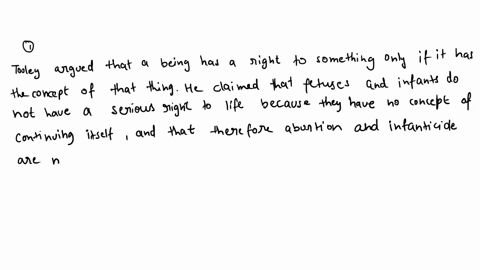 ①
Tooley argued that a being has a right to something only if it has
the concept of that thing. He claimed that fetuses and infants do
not have a serious right to life because they have no concept of
continuing itself, and that therefore abortion and infanticide
are n